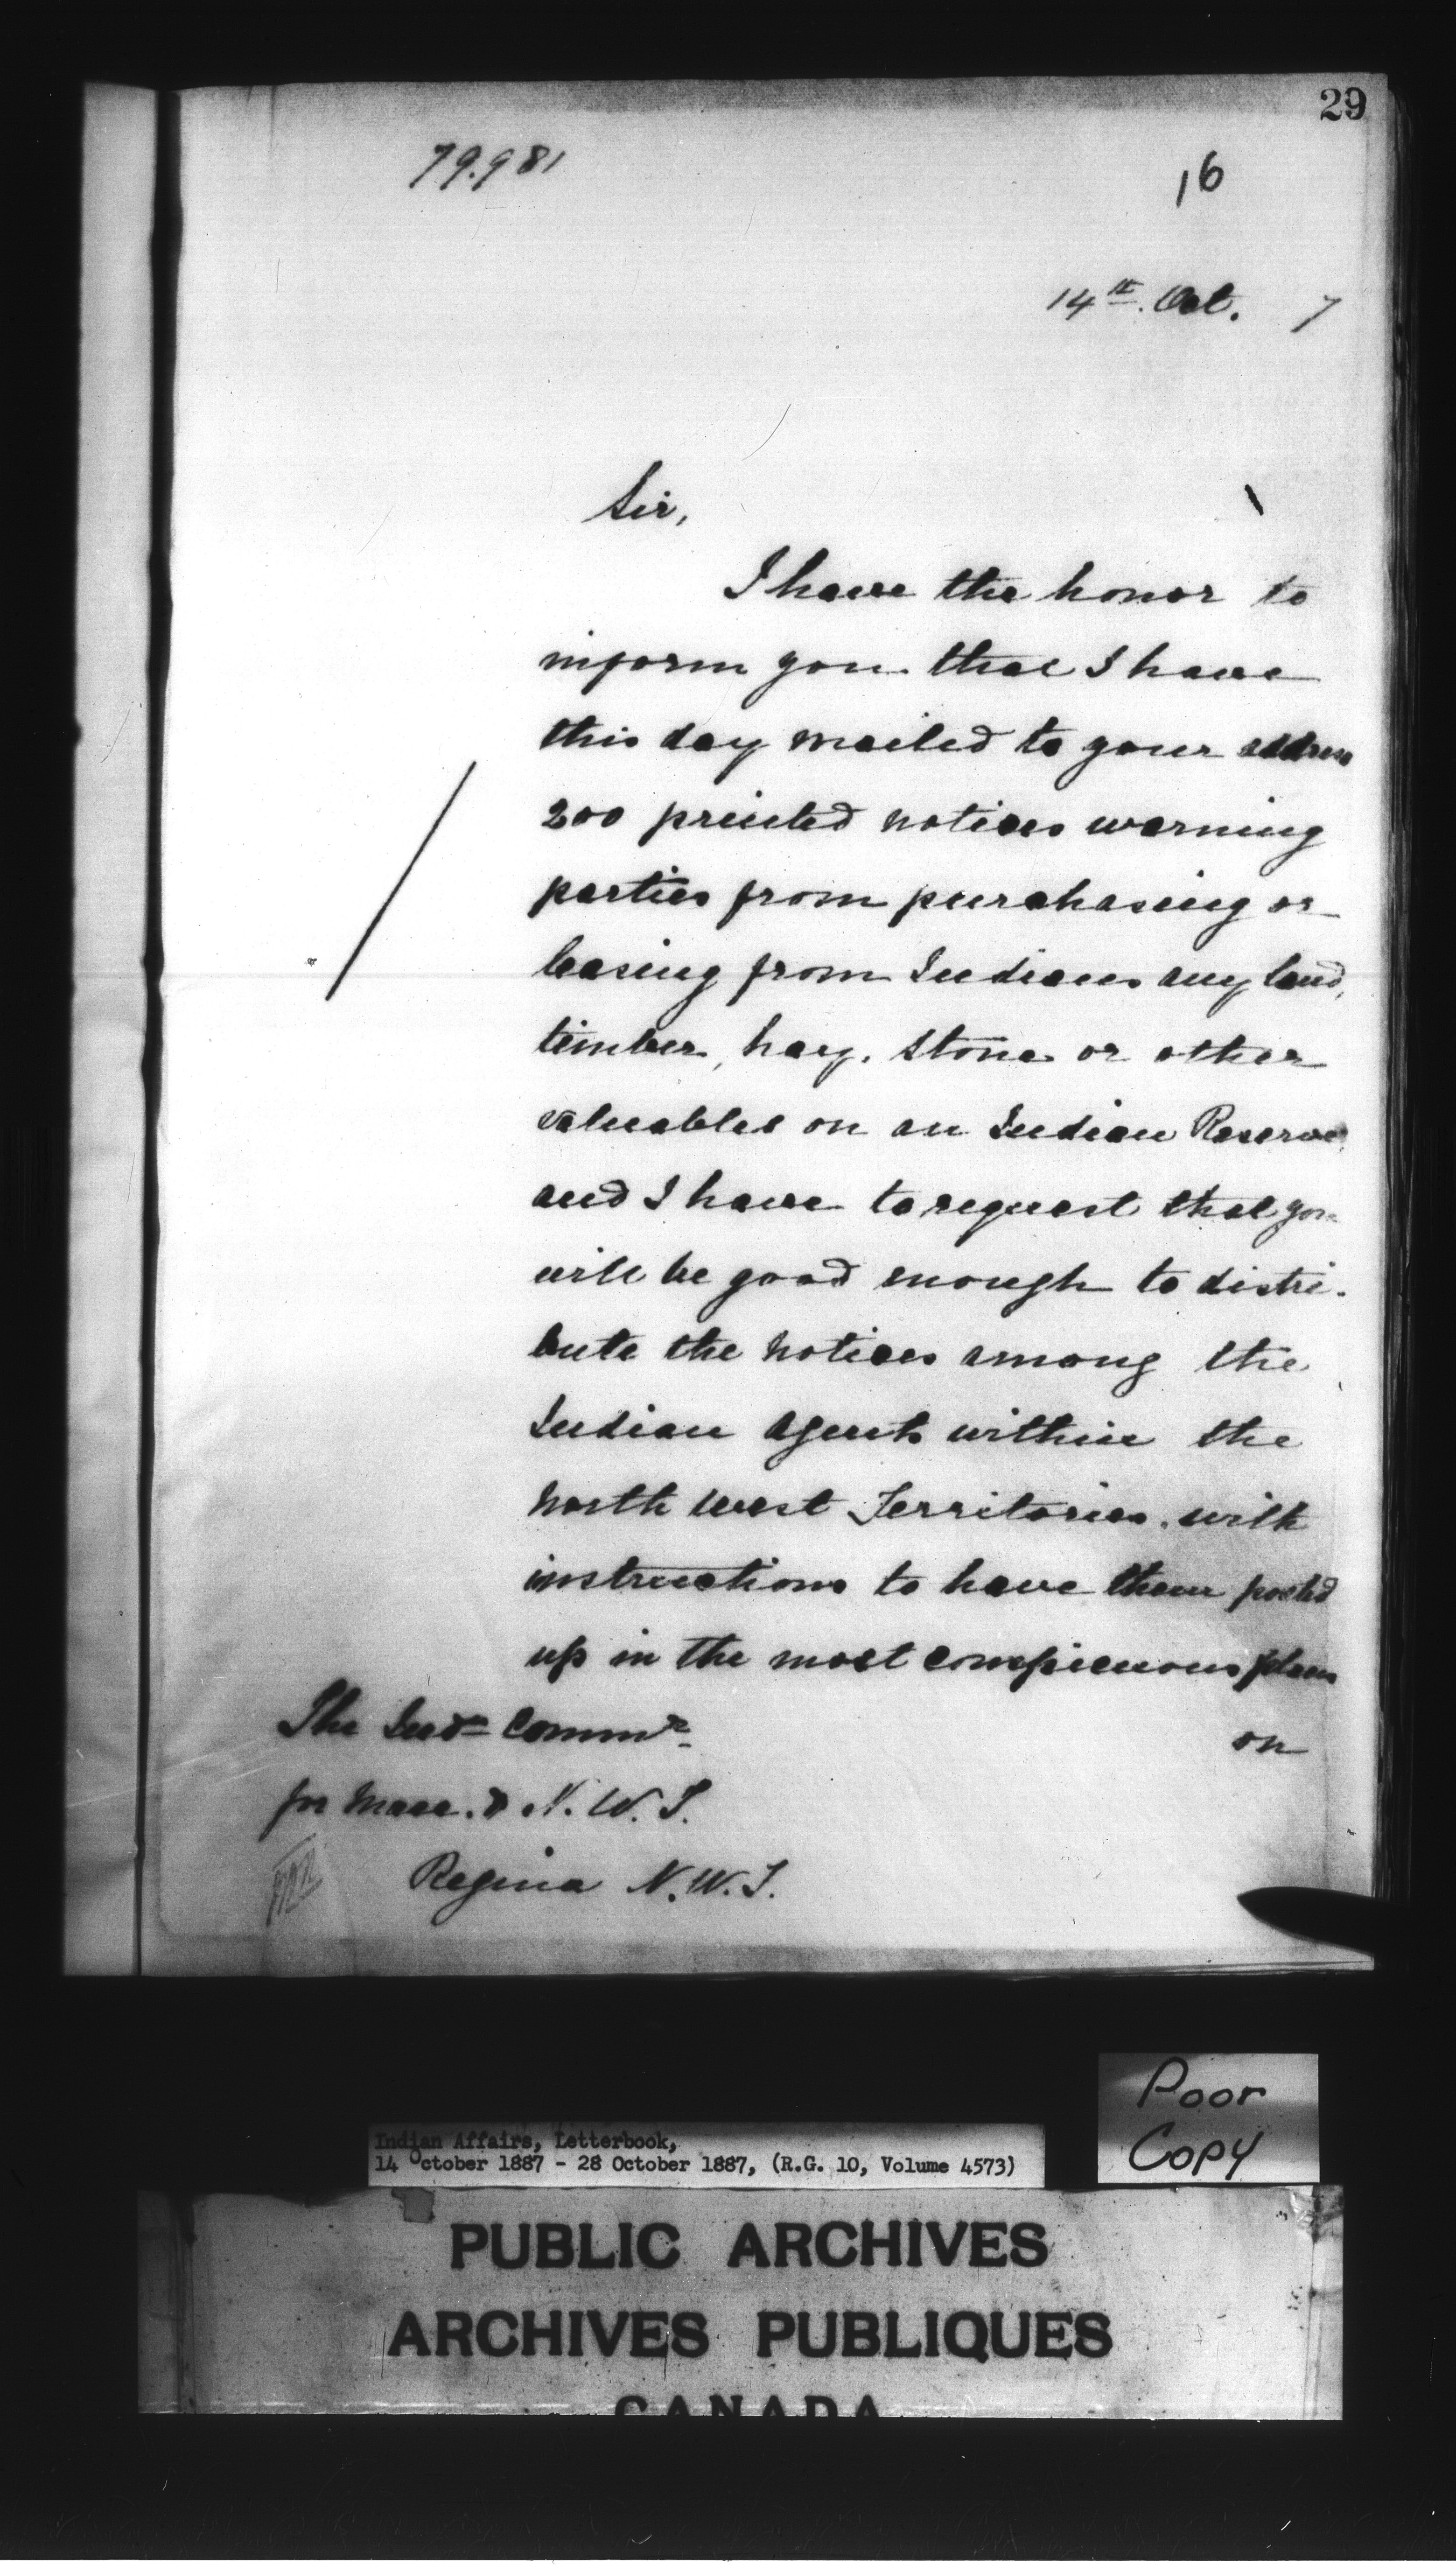 29
79.981
16
14th. Oct. 7
Sir,
I have the honor to
inform you that I have
this day mailed to your address
200 printed notices warning
parties from purchasing or
leasing from Indians any land,
timber, hay, stone or other
valuables on an Indian Reserve
and I have to request that you
will be good enough to distri-
bute the notices among the
Indian Agents within the
North West Territories, with
instructions to have them posted
up in the most conspicuous places
on
The Indn Commr
for Man. & N.W.T.
Regina N.W.T.
Poor
Copy
Indian Affairs, Letterbook,
14 October 1887 - 28 October 1887, (R.G. 10, Volume 4573)
PUBLIC ARCHIVES
ARCHIVES PUBLIQUES
CANADA